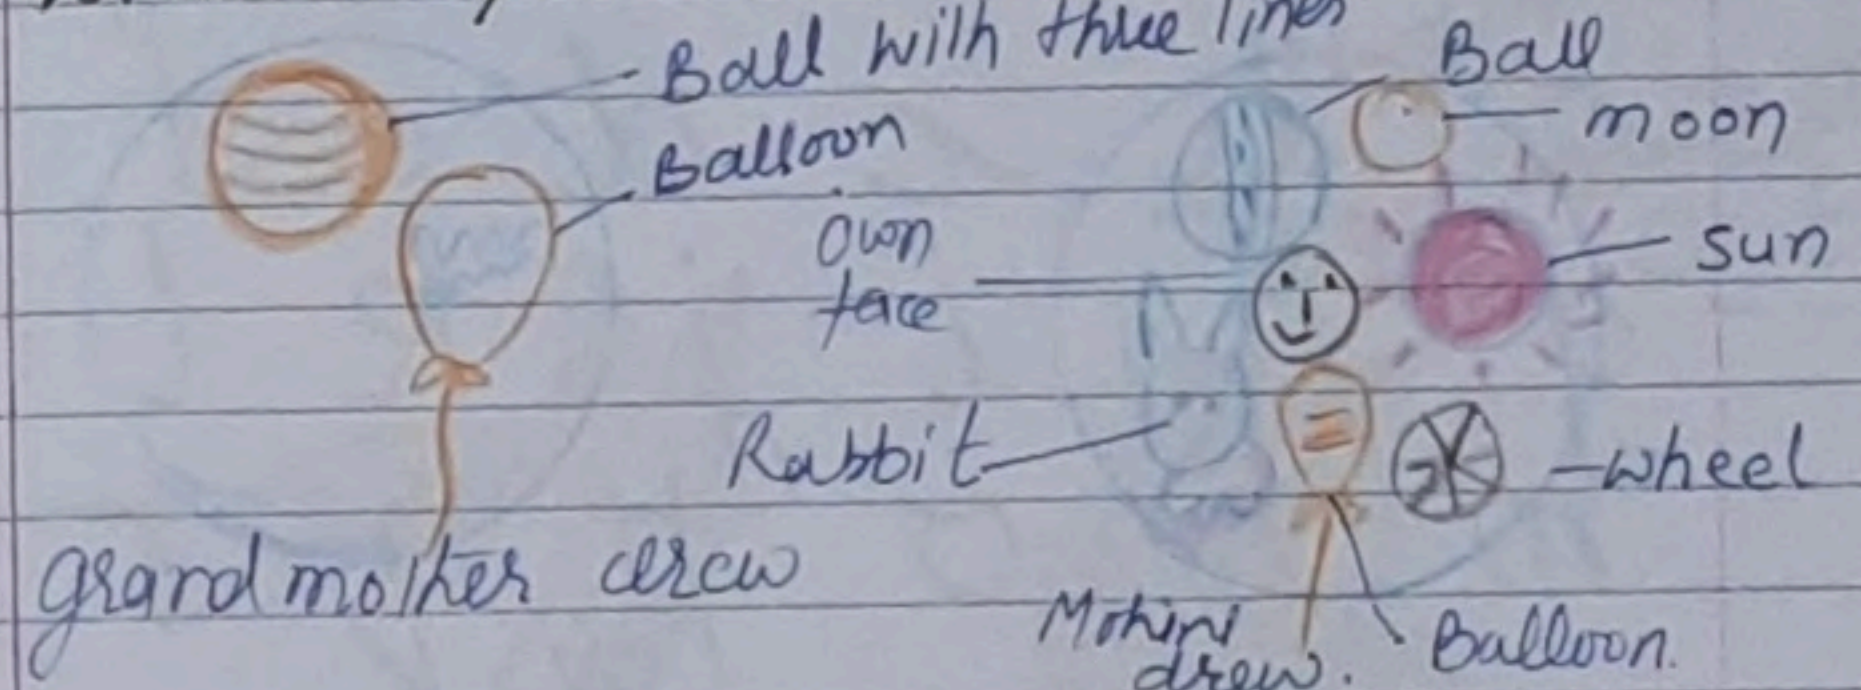 Ball with three lines
Balloon
grandmother drew
Ball
moon
own
face
sun
Rabbit
-wheel
Mohini
drew.
Balloon.